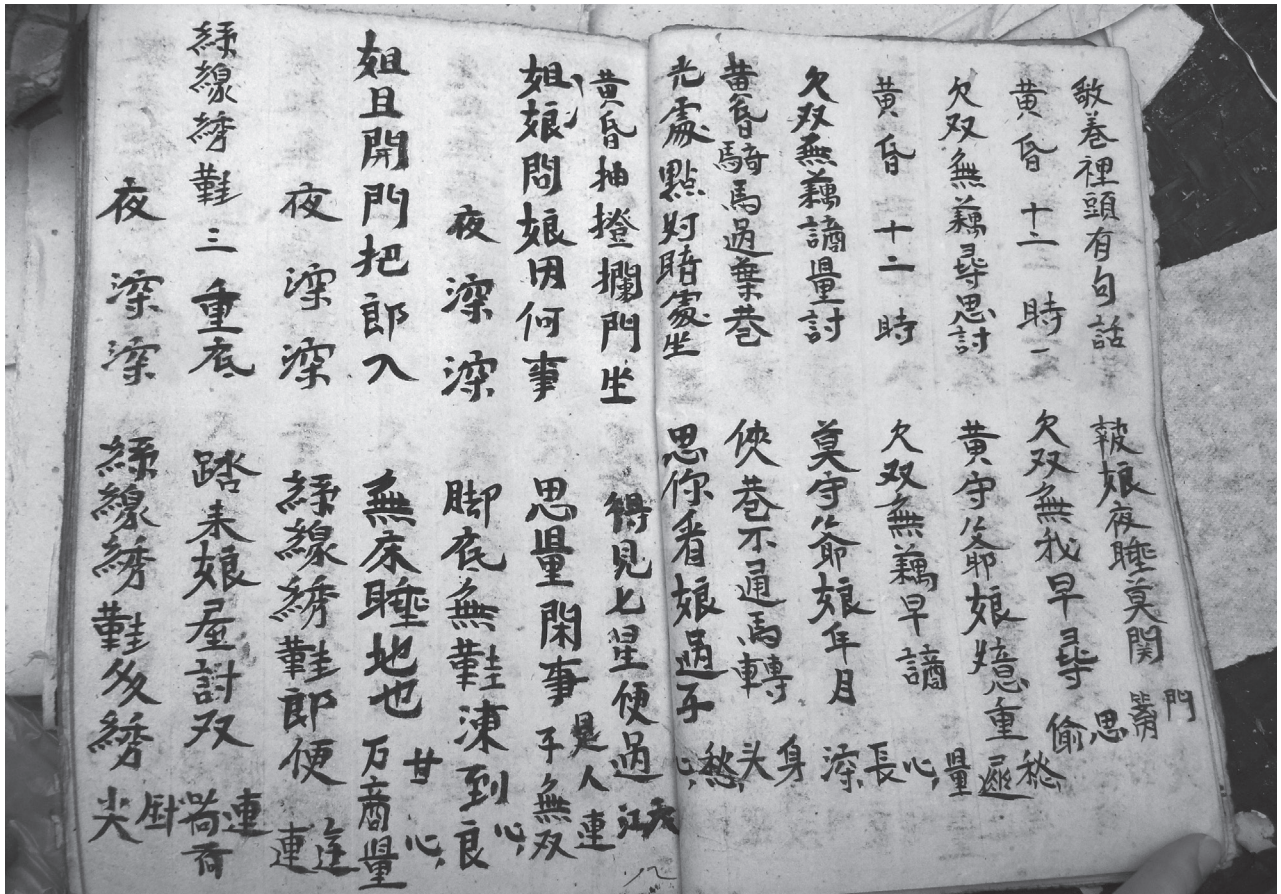 敬巷裡頭有句話 報娘夜睡莫関 門
黃昏十二時一 欠双無我早尋 思偷
欠双無藕尋思討 黃守爺娘意重 愁
黃昏十二時 欠双無藕早謫 量心
欠双無藕謫量討 莫守爺娘年月 長深
黃昏騎馬過葉巷 俠巷不通馬轉 身头
光處點灯暗處坐 思你看娘過不 愁心
黃昏抽橙攔門坐 得見七星便過
姐娘問娘因何事 思量閑事 是人連 不無双
夜深深 脚底無鞋凍到 心 良
姐且開門把郎入 無床睡地也 甘心 万商量
夜深深 絲線綉鞋郎便 連
絲線綉鞋三重底 踏来娘屋討双 連 荷
夜深深 絲線綉鞋多綉 尖